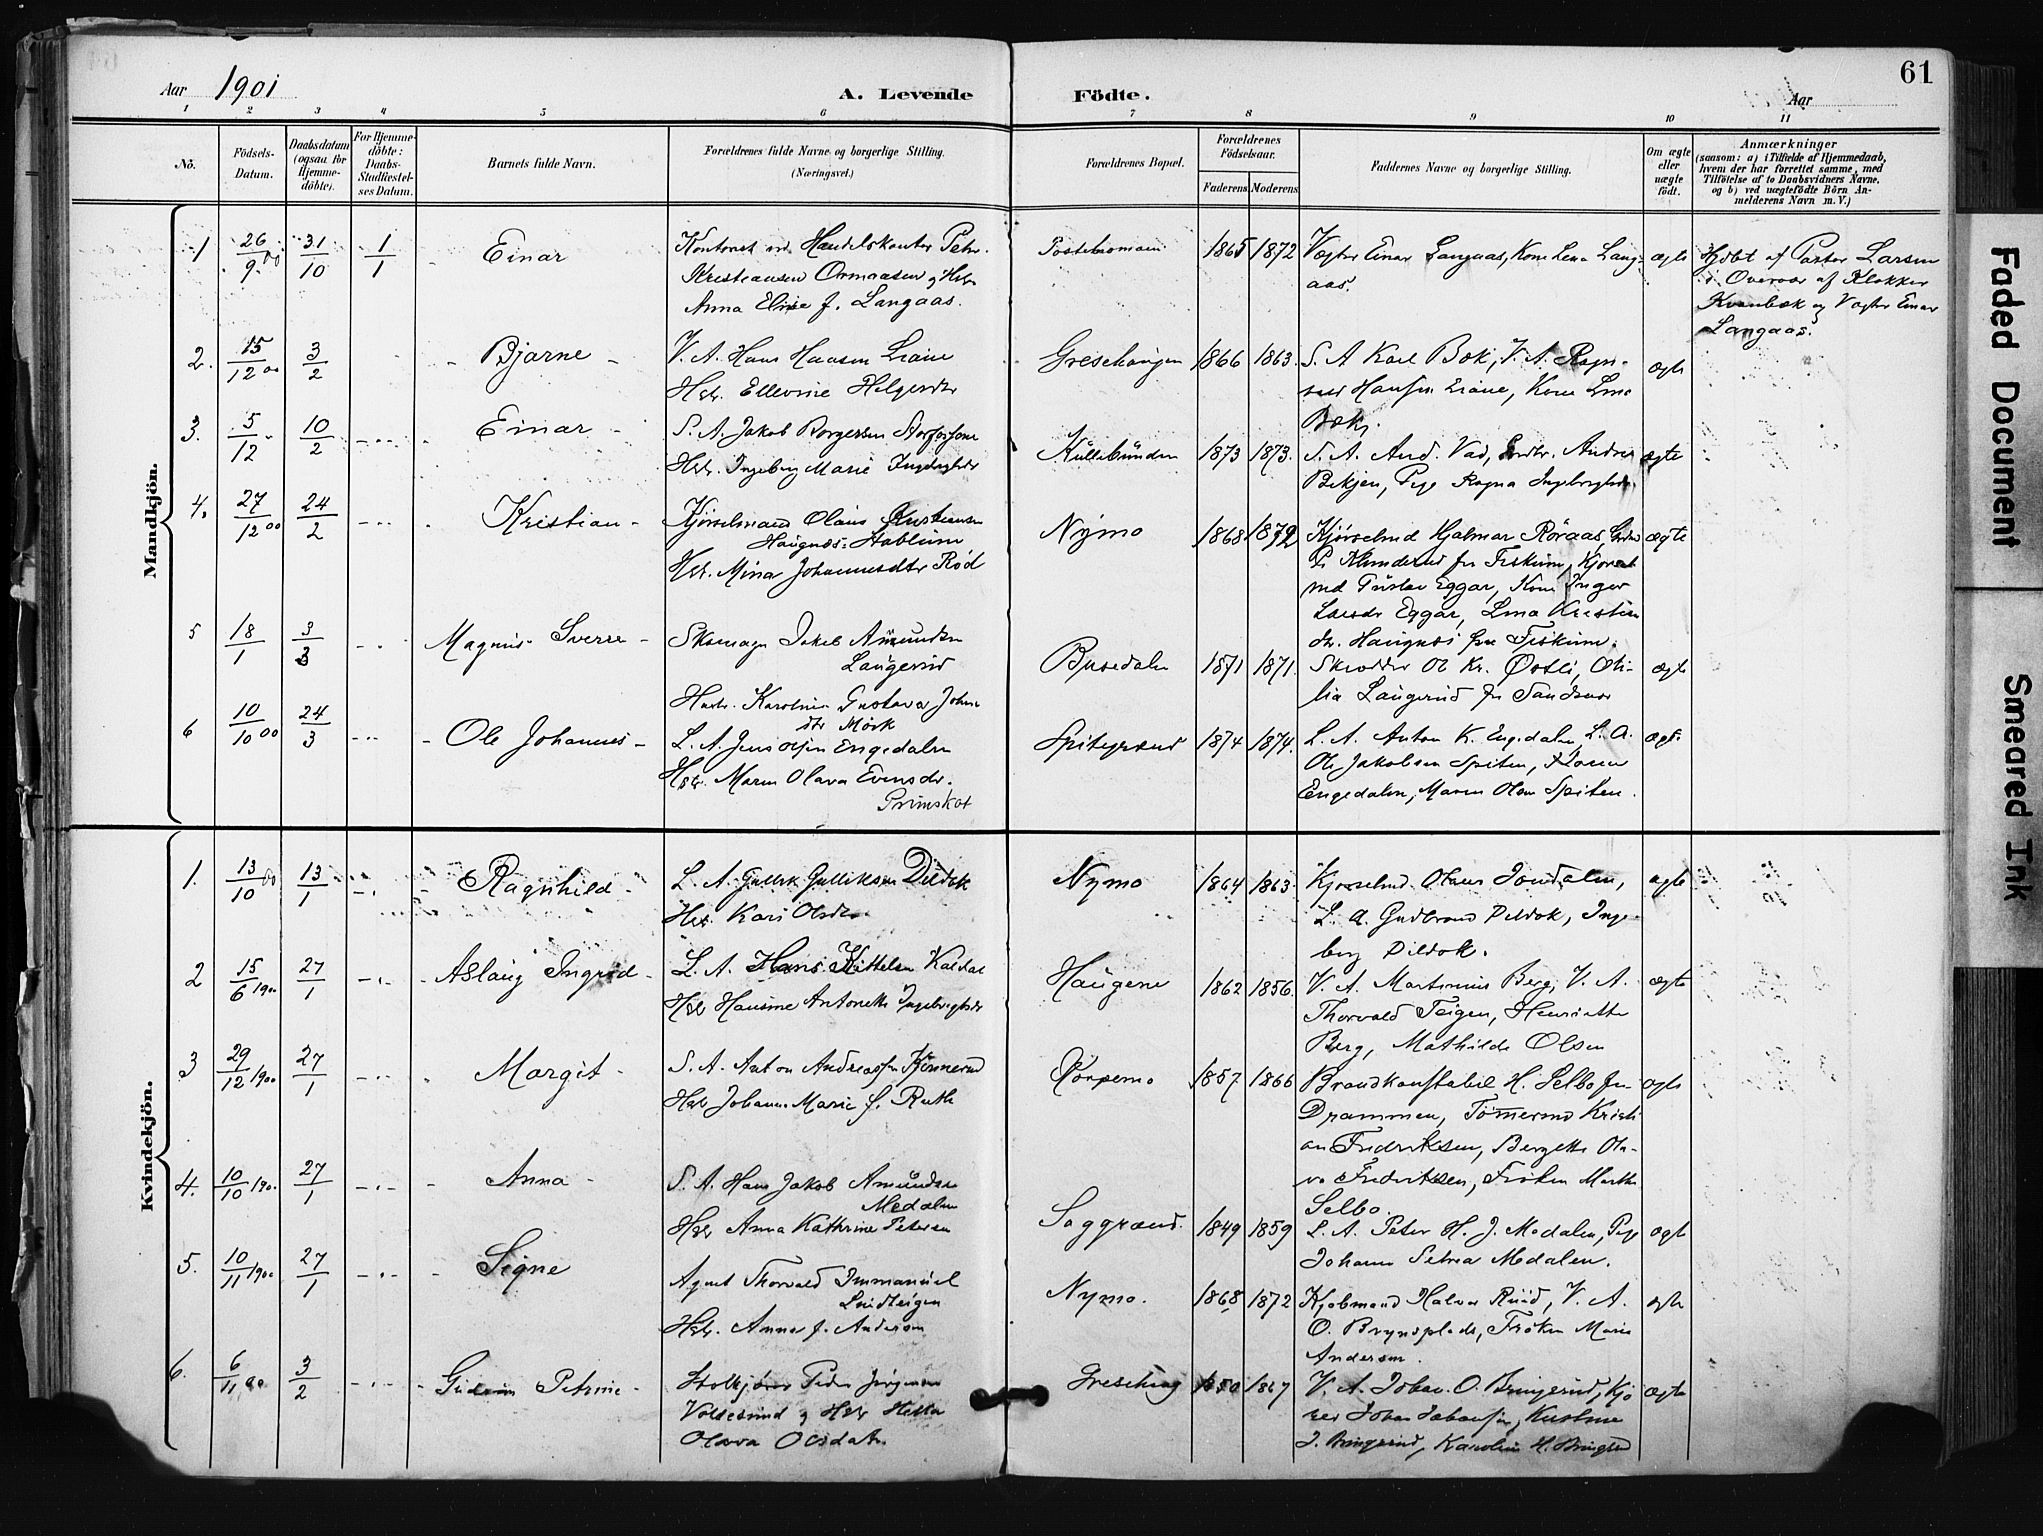 61
Aar 1901
A. Levende Födte.
Aar
1 2 3 4 5 6 7 8 9 10 11
Nö.
Födsels-Datum.
Daabsdatum (ogsaa for Hjemmedöbte).
For Hjemmedöbte: Daabs-Stadfæstelses Datum.
Barnets fulde Navn.
Forældrenes fulde Navne og borgerlige Stilling.
(Næringsvei.)
Forældrenes Bopæl.
Forældrenes Födselsaar.
Faderens Moderens
Faddernes Navne og borgerlige Stilling.
Om ægte eller uægte födt.
Anmærkninger
(saasom: a) i Tilfælde af Hjemmedaab, hvem der har forrettet samme, med Tilföielse af to Daabsvidners Navne, og b) ved uægtefödte Börn Anmelderens Navn m. V.)
Mandkjön.
1 26/9 00 31/10 1/1 Einar
Kristiansen Ormaasen og Hstr
Anna Elise f. Langaas.
1865 1872
Vægter Einar Langaas, Kone Lena Langaas.
ægte
Hjdbt af Pastor Larsen
i Overvær af Klokker
Kvanbæk og Vægter Einar
Langaas.
2. 15/12 00 3/2 Bjarne
V. A. Hans Hansen Liane
Hstr. Ellevine Helgesdtr
1866 1863.
S. A Karl Bæk, V. A. Ragnvar Hansen Liane, Kone Lina
Bæk.
ægte
3. 5/12 10/2 Einar
S. A. Jakob Borgersen
Hstr. Ingeborg Marie Ingebrigtsdtr
1873 1873.
S. A. And. Vad,
ægte
4. 27/12 00 24/2 Kristian
Kjörselmand Olaus Kristiansen
Hstr. Mina Johannesdtr Röd
Nymo
1868 1872
Kjörselmd Hjalmar Röraas
fra Fiskum,
Gustav Eggar, Kone Inger
Larsdr Eggar, Lina Kristian
dtr. Haugnæs fra Fiskum.
ægte
5 18/1 3/3 Magnus Sverre
Skomager Jakob Amundsen
Langerud
Hustr. Karoline Gustava Johns
dtr Mörk
Busedalen
1871 1871.
Skrædder Ol Kr. Östli, Otilia Langerud fra Sandsvær
ægte
6 10/10 00 24/3 Ole Johannes
L. A. Jens Olsen Engedalen
Hstr. Maren Olava Evensdr.
Spitengrænd
1874 1874.
L. A. Anton K. Engedalen, L. A.
Ole Jakobsen Spiten, Karen
Engedalen, Maren Olsen Spiten.
ægte
Kvindekjön.
1. 13/10 00 13/1 Ragnhild
L. A. Gullik Gulliksen Dildok
Hstr Kari Olsdtr.
Nymo
1864 1863
Kjörselmd. Olaus Jondalen,
L. A. Gudbrand Dildok, Ingeborg Dildok.
ægte
2 15/6 1900 27/1 Aslaug Ingrid
L. A. Hans Kittelsen Kaldal
Hstr Hansine Antonette Ingebrigtsdr
Haugene
1862 1856.
V. A. Martinius Berg, V. A.
Thorvald Teigen, Henriette
Berg, Mathilde Olsen
ægte
3 29/12 1900 27/1 Margit
S. A. Anton Andreassen Kjennerud
Hstr Johanne Marie f. Ruth
1857 1866
Brandkonstabel H. Selbo fra
Drammen, Tömmermd Kristian Fredriksen, Bergette Olava Fredriksen, Fröken Marthe
Selbo.
ægte
4. 10/10 190. 27/1 Anna
S. A. Hans Jakob Amundsen
Medalen
Hstr Anna Kathrine Petersen
Saggrænd.
1849 1859
L. A. Peter H. J. Medalen, Pige
Johanne Petrea Medalen.
ægte
5. 10/11 1900 27/1 Signe
Agent Thorvald Immanuel
Lindteigen
Hstr. Anna f. Andersen
Nymo.
1868 1872
Kjöbmand Halvor Ruud, V. A.
O. Brynsplads, Fröken Marie
Andersen.
ægte
6. 6/11 00 3/2 Gudrun Petrine
Peder Jörgensen
og Hstr
Olava Olsdatr.
1850 1867
V. A. Johan O. Bringerud,
J. Bringerud, Karoline H.
ægte
Faded Document
Smeared Ink